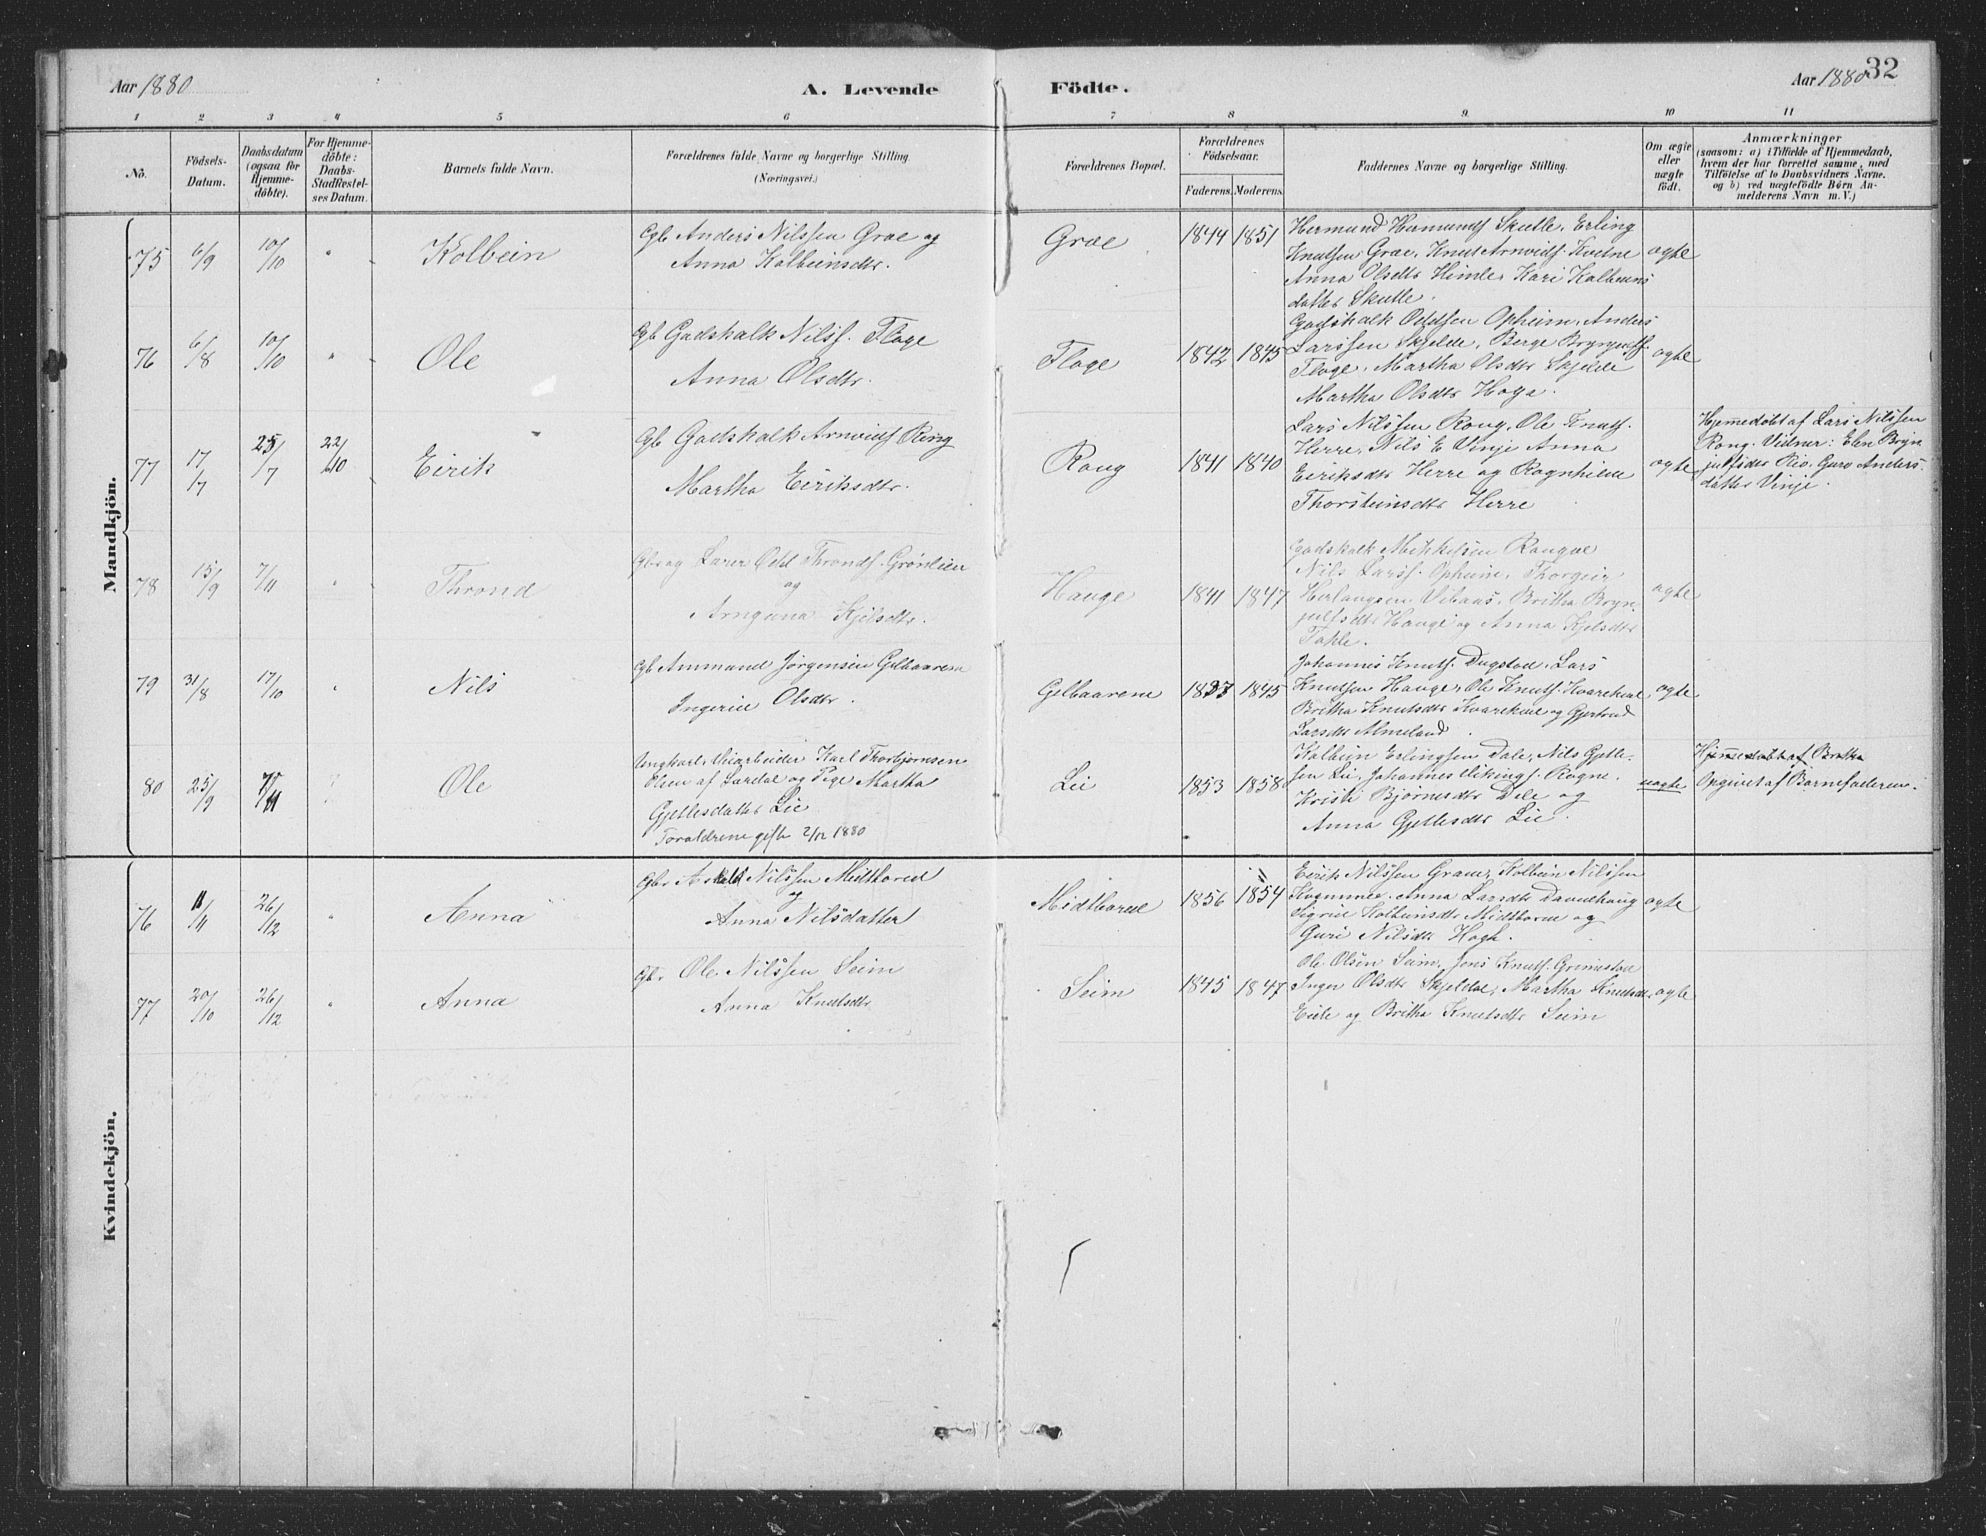 Aar 1880 A. Levende Födte. Aar 1880 32
1 2 3 4 5 6 7 8 9 10 11
No.
Födsels-Datum.
Daabsdatum (ogsaa for Hjemmedöbte).
For Hjemmedöbte: Daabs-Stadfæstelses Datum.
Barnets fulde Navn.
Forældrenes fulde Navne og borgerlige Stilling. (Næringsvei.)
Forældrenes Bopæl.
Forældrenes Födselsaar.
Faderens. Moderens.
Faddernes Navne og borgerlige Stilling.
Om ægte eller uægte födt.
Anmærkninger
(saasom: a) i Tilfælde af Hjemmedaab,
hvem der har forrettet samme, med
Tilföielse af to Daabsvidners Navne.
og b) ved uægtefödte Börn An-
melderens Navn m. V.)
Mandkjön.
75 6/9 10/10 " Kolbein
Gbr Anders Nilssen Græe og
Anna Kolbeinsdtr.
Græe 1844 1851
Hermund Hermundsf Skutle, Erling
Knutsen Græe, Knut Arnvidsf. Kvitne
Anna Olsdtr Himle, Kari Kolbeins
datter Skutle.
ægte
76 6/8 10/10 " Ole
Gbr Gadskalk Nilsf. Fløge
Anna Olsdtr.
Fløge 1842 1845
Gadskalk Oddsen Opheim, Anders
Larssen Skjelde, Berge Brynjulfs.
Fløge, Martha Olsdtr Skjelde
Martha Olsdtr Haga.
ægte
77 17/7 25/7 22/10 Eirik
Gbr Gadskalk Arnvidsf Ring
Martha Eiriksdtr.
Rong 1841 1840
Lars Nilssen Rong, Ole Knutf.
Herre, Nils E Vinje Anna
Eiriksdtr Herre og Ragnhilde
Thorsteinsdtr Herre
ægte
Hjemmedøbt af Lars Nilssen
Rong. Vidner: Elen Bryn
julfsdtr Rio, Guro Anders
datter Vinje.
78 15/9 7/11 " Thrond
Gbr og Lærer Odd Throndf. Grønlien
og
Arnguna Kjelsdtr.
Hauge 1841 1847
Gadskalk Mikkelsen Rongve
Nils Larsf. Opheim, Thorgeir
Herlaugsen Vibaas, Britha Bryn
julfsdtr Hauge og Anna Kjelsdtr
ægte
79 31/8 17/10 " Nils
Gbr Ammund Jørgensen Gelbaarene
Ingerid Olsdtr.
Gelbaarene 1837 1845
Johannes Knutf. Dugstad, Lars
Knutsen Hauge, Ole Knutf. Kvarekval
Britha Knutsdtr Kvarekval og Gjertrud
Larsdtr Almeland.
ægte
80 25/9 7/11 Ole
Ungkarl, Veiarbeider Karl Thorbjørnsen
Olsen af Lærdal og Pige Martha
Gjellesdatter Lie
Forældrene gifte 2/12 1880
Lie 1853 1858
Kolbein Erlingsen Dale, Nils Gjelle-
sen Lie, Johannes Vikingf. Rogne.
Kristi Bjørnesdtr Dale og
Anna Gjellesdtr Lie.
uægte
Hjemmedøbt af Britha
Opgivet af Barnefaderen.
Kvindekjön.
76 11/11 26/12 " Anna
Gbr Nilssen Midtbøred
og
Anna Nilsdatter
Midtbøred 1856 1854
Eirik Nilssen Graue, Kolbein Nilssen
Anna Larsdtr
Sigrid Kolbeinsdtr Midtbøred og
Guri Nilsdtr
ægte
77 20/10 26/12 " Anna
Gbr Ole Nilssen Seim
Anna Knutsdtr
Seim 1845 1847
Ole Olsen Seim, Jens Knutf. Grimestad
Inger Olsdtr Skjeldal, Martha Knutsdtr
Eide og Britha Knutsdtr Seim
ægte